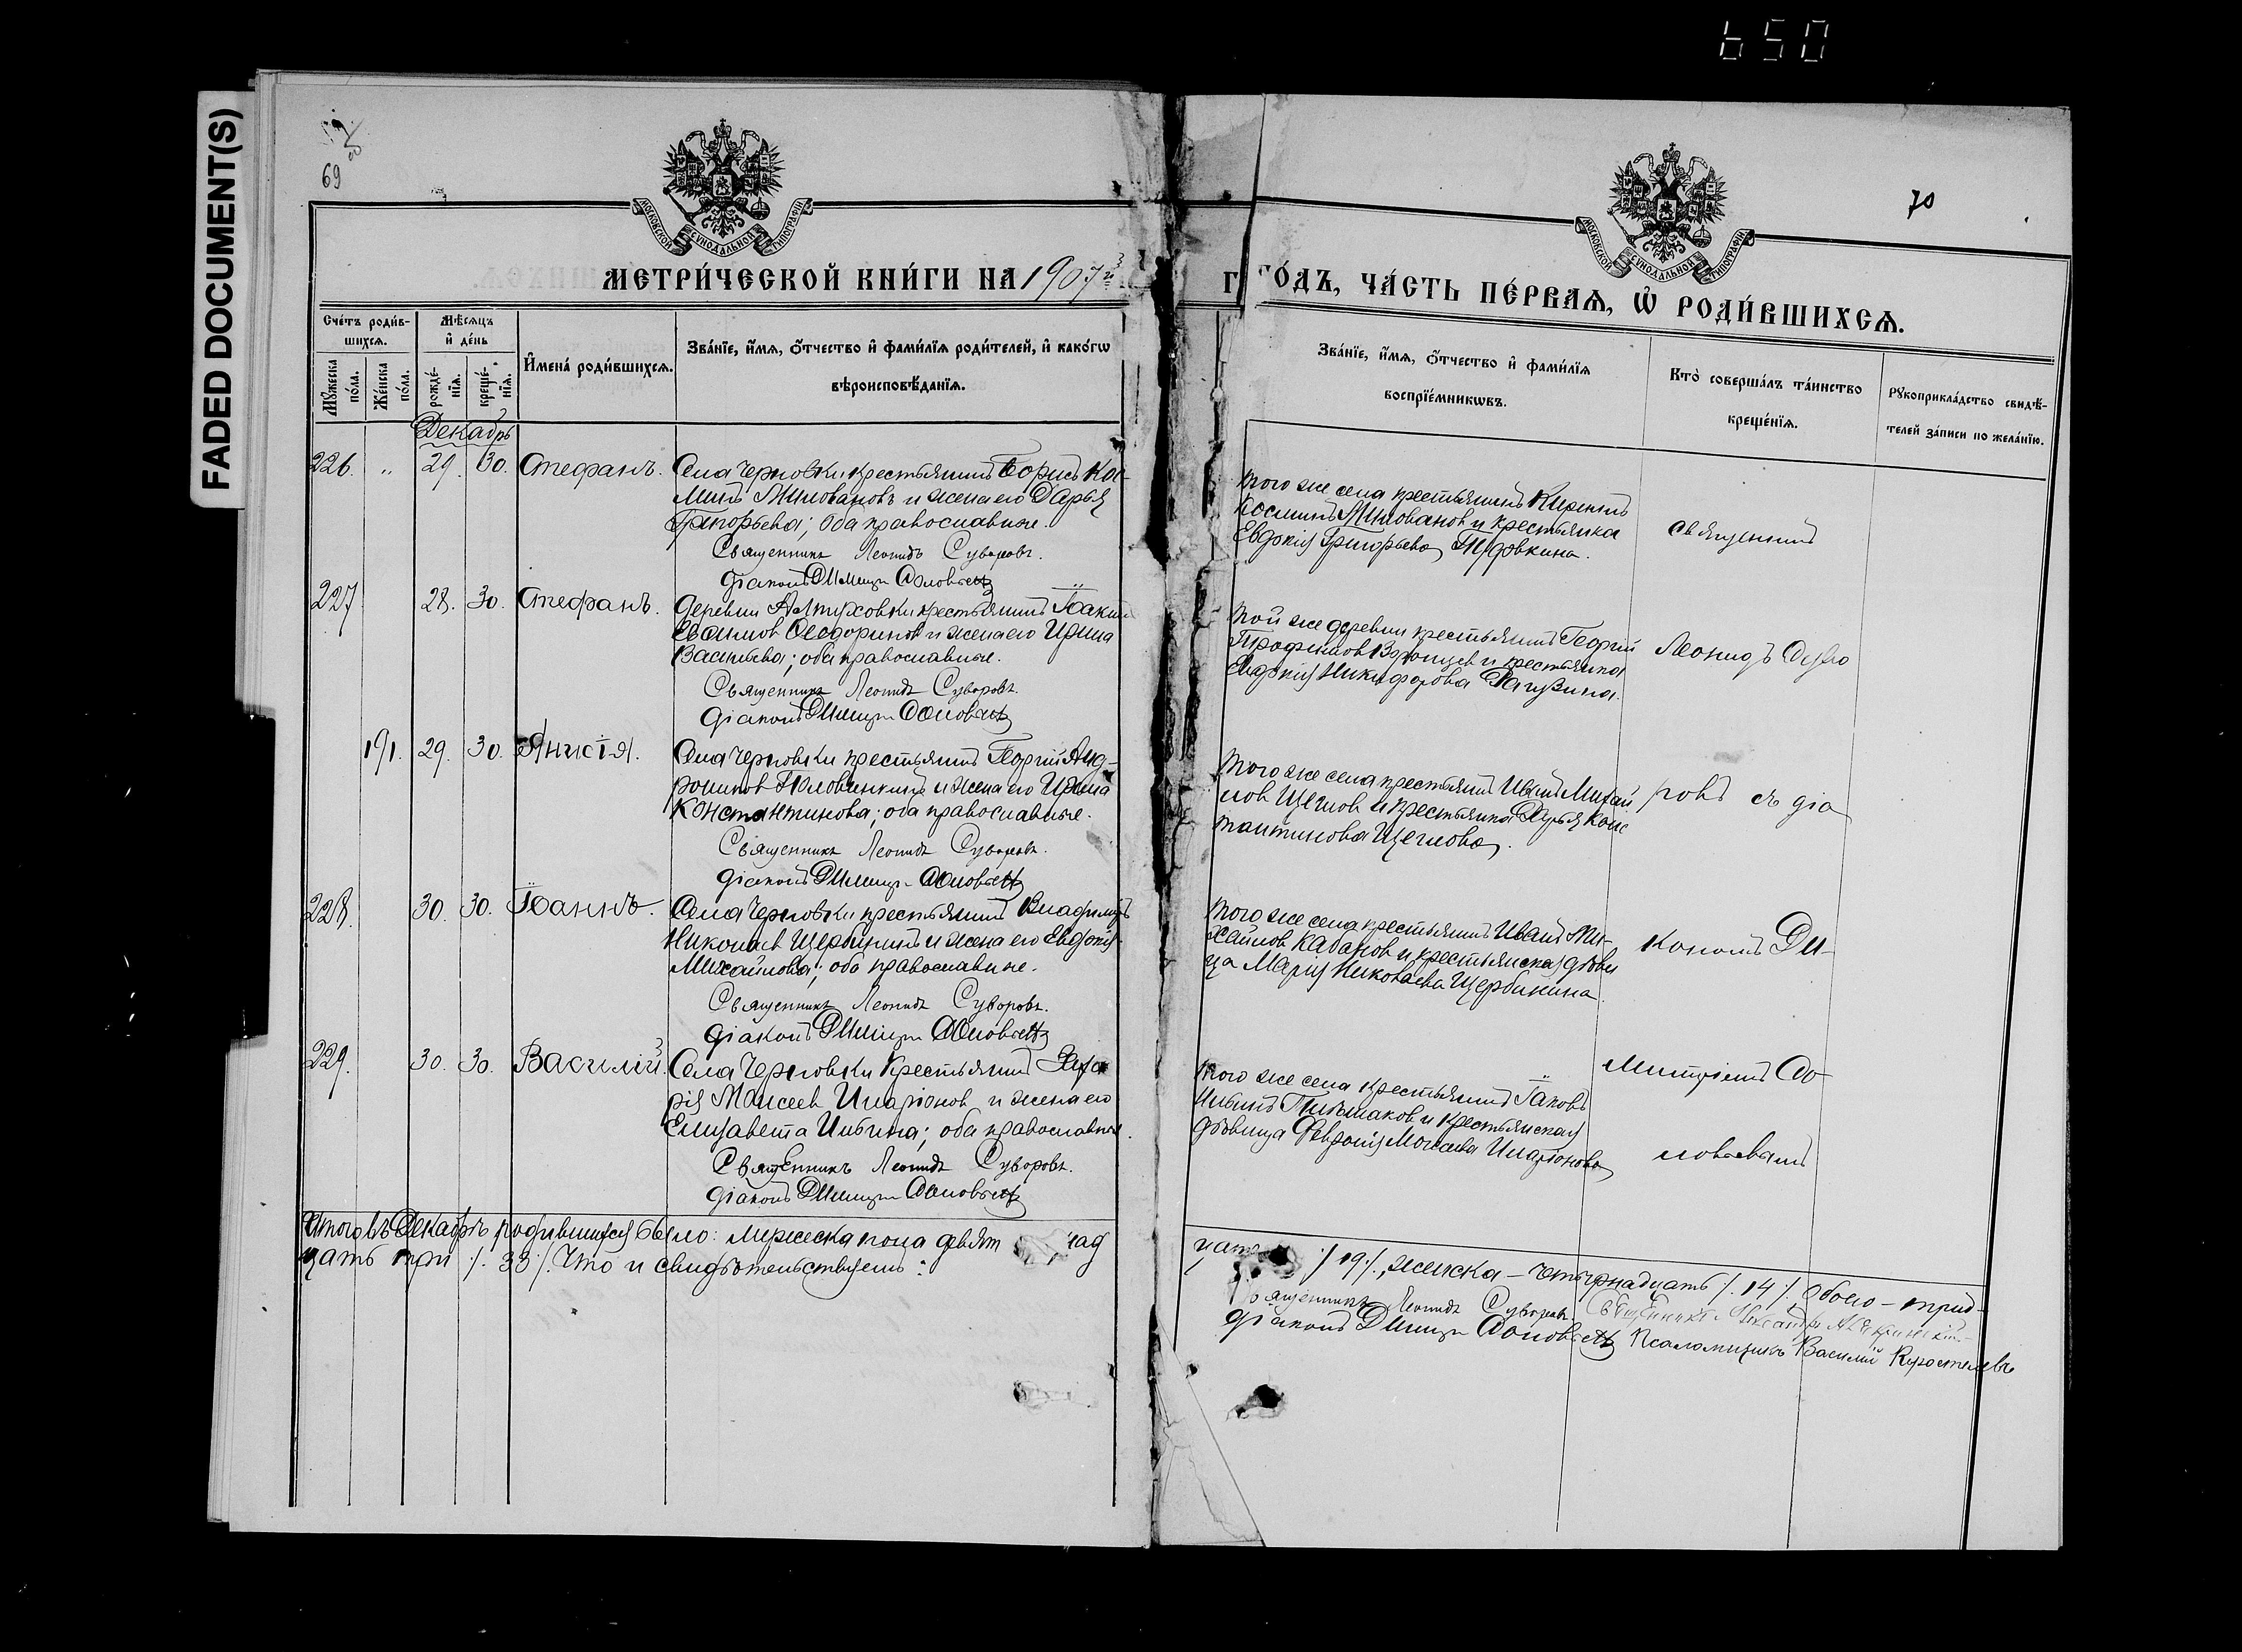 650
FADED DOCUMENT(S)
69
70
МОСКОВСКОЙ СУНОДАЛЬНОЙ ТИПОГРАФІИ
МОСКОВСКОЙ СУНОДАЛЬНОЙ ТИПОГРАФІИ
МЕТРИ́ЧЕСКОЙ КНИ́ГИ НА 1907й
ГО́ДЪ, ЧА́СТЬ ПЕ́РВАЯ, Ѡ҆ РОДИ́ВШИХСЯ.
Сче́тъ роди́в-
шихся.
Мѣ́сяцъ
и҆ де́нь
Мꙋ́жеска
по́ла.
Же́нска
по́ла.
рожде́-
нїя.
креще́-
нїя.
И҆мена̀ роди́вшихся.
Зва́нїе, и҆́мя, ѻ҆́тчество и҆ фами́лїя роди́телей, и҆ како́гѡ
вѣроисповѣ́данїя.
Зва́нїе, и҆́мя, ѻ҆́тчество и҆ фами́лїя
воспрїе́мникѡвъ.
Кто̀ соверша́лъ та́инство
креще́нїя.
Рꙋкоприкла́дство свидѣ́-
телей за́писи по жела́нїю.
Декабрь
226. " 29. 30. Стефанъ.
Села Черновки крестьянинъ Борисъ Кос-
минъ Миловановъ и жена его Дарья
Григорьева; оба православные.
Священникъ Леонидъ Суворовъ.
діаконъ Димитрій Соловьевъ
того же села крестьянинъ
Косминъ Миловановъ и крестьянка
Евдокія Григорьева
священникъ
227 28. 30. Стефанъ.
деревни крестьянинъ Іоаким
и жена его Ирина
Васильева; оба православные.
Священникъ Леонидъ Суворовъ.
діаконъ Димитрій Соловьевъ
той же деревни крестьянинъ Георгій
Трофимов и крестьянка
Евдокія Никифорова
Леонидъ Суво
191. 29. 30. Анисія.
Села Черновки крестьянинъ Георгій Анд-
роников и жена его Ирина
Константинова; оба православные.
Священникъ Леонидъ Суворовъ.
діаконъ Димитрій Соловьевъ
того же села крестьянинъ Иванъ Михай
лов Щеглов и крестьянка Дарья Конс
тантинова Щеглова.
ровъ съ діа
228. 30. 30. Іоаннъ.
Села Черновки крестьянинъ Владимиръ
Николаев Щербининъ и жена его Евдокія
Михайлова; оба православные.
Священникъ Леонидъ Суворовъ.
діаконъ Димитрій Соловьевъ
того же села крестьянинъ Иванъ Ми-
хайлов Кабанов и крестьянская дѣви
ца Марія Николаева Щербинина.
кономъ Ди-
229. 30. 30. Василій.
Села Черновки крестьянинъ Заха
рія Моисеев Иларіонов и жена его
Елизавета Ильина; оба православные.
Священникъ Леонидъ Суворовъ.
діаконъ Димитрій Соловьевъ
того же села крестьянинъ Іаковъ
Ильинъ и крестьянская
дѣвица Февронія Моисеева Иларіонова
митріемъ Со-
ловьевымъ
Итого въ Декабрѣ родившихся было: мужеска пола девят над
цать ./. 19 ./., женска – четырнадцать ./. 14 ./. Обоего – трид-
цать три ./. 33 ./. Что и свидѣтельствуемъ:
Священникъ Леонидъ Суворовъ Священникъ Александръ
діаконъ Димитрій Соловьевъ Псаломщикъ Василій Коростелевъ